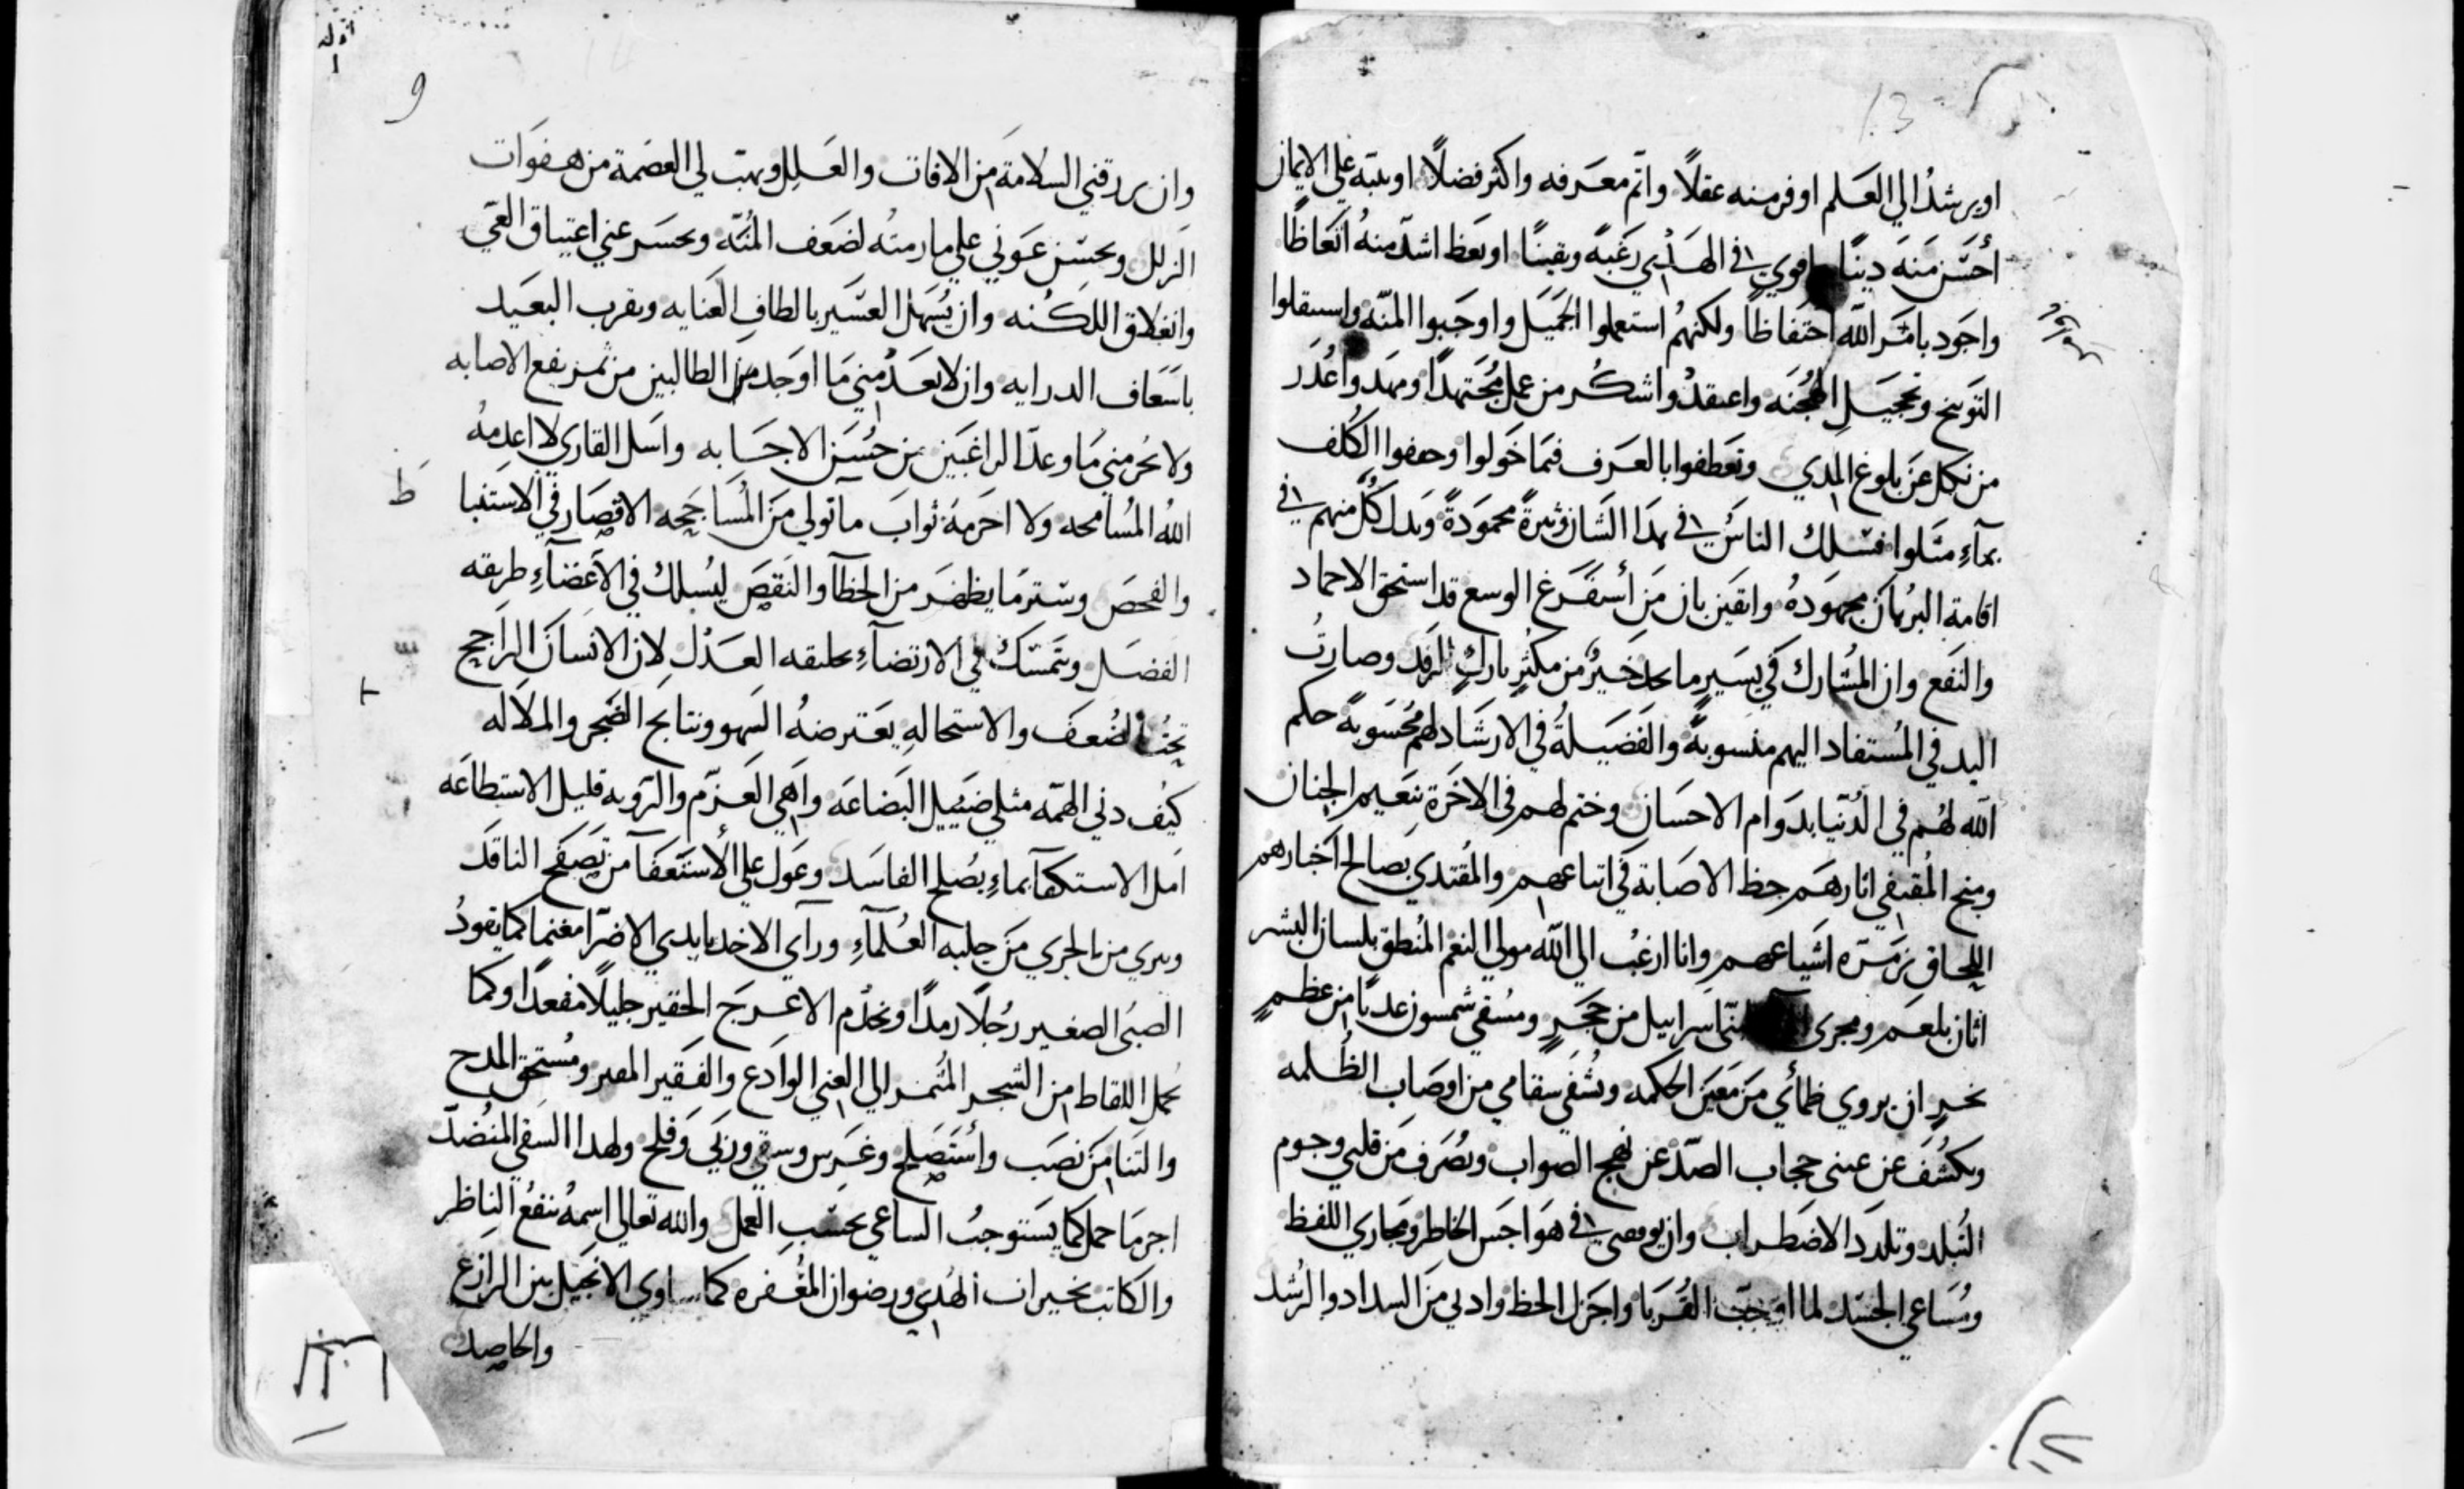 او يرشد الي العلم اوفر منه عقلاً واتم معرفه واكثر فضلاً او ينبه علي الايمان
أحسن منه دينًا واقوي في الهدي رغبةً ويقينًا او يعظ اشد منهُ اتعاظًا
واجود بامر اللّه احتفاظًا ولكنهمُ استعملوا الجميل واوجبوا المنّه واستقلوا
التوبيخ وتحجيل الهُجنه واعتقدُوا شكر من عمل مُجتهدًا ومهد وأعُذر
من نكل عن بلوغ المدي وتعطفوا بالعرف فيما خولوا وخففوا الكلف
فسلك الناس في هذا الشان وتيرةً محمودةً وبدل كل منهم في
اقامة البرُهان مجهودهُ وايقن بان من أستفرغ الوسع قد استحق الاحماد
والنفع وان المشارك في يسير ما يجد خيرٌ من مكثرٍ تارك الرفد وصارتُ
اليد في المُستفاد اليهم منسوبةً والفضيلةُ في الارشاد لهم محُسوبةً حكم
اللّه لهُم في الدُنيا بدوام الاحسان وختم لهم في الاخرة بنعيم الجنان
ومنح المُقتفي اثارهم حظ الاصابة في اتباعهم والمُقتدي بصالح اخبارهم
اللحاق بزمره اشياعهم وانا ارغبُ الي اللّه مولي النعم المُنطق بلسان البشر
اتان بلعم ومجري اسراييل من حجرٍ ومُسقي شمسون عدبًا من عظمٍ
نخرٍ ان يروي ظمأي من معين الحكمه ويُشفي سقامي من اوصاب الظُلمه
ويكشُف عن عيني حجاب الصدّ عن نهج الصواب ويصُرف من قلبي وجوم
التبلد وتلدد الاضطراب وان في هواجس الخاطر ومجاري اللفظ
ومُساعي الجسد لما القربا واجزل الحظ وادني من السداد والرُشد
وان يرزقني السلامة من الافات والعلل ويهب لي العصمة من هفوات
الزلل ويحسن عوني علي ما رمته لضعف المُنّه ويحسر عني اعتياق العيّ
وانغلاق اللكُنه وان يُسهل العسير بالطاف العنايه ويقرب البعيد
باسعاف الدرايه وان لا يعدُ مني ما اوجد من الطالبين من ثمر نفع الاصابه
ولا يحُر مني ما وعد الراغبين من حُسن الاجابه واسل القاري لا اعدمهُ
اللهُ المُسامحه ولا احرمهُ ثواب ما تولي من الاقصار في الاستنبا
والفحص وستر ما يظهر من الخطآ والنقص ليُسلك في الاغضآءِ طريقه
الفضل ويتمسّك في الارتضآءِ العدُل لان الانسان الراجح
الضُعف والاستحالهِ يعترضهُ السهو ونتايج الضجر والملاله
كيُف دني الهمّه مثلي ضئيل البضاعه واهي العزم والرويه قليل الاستطاعه
امل الاستكفآ بماءِ يصُلح الفاسد وعول علي الأستعفآ من تصفح الناقد
من الجري من حلبه العُلمآءِ ورآي الاخد بايدي الاضرّا مغنمًا كما يقودُ
الصبُي الصغير رجُلًا رمدًا ويخدُم الاعرج الحقير جليلًا مقعدًا وكما
يحُمل اللقاط من الشجر المُثمر الي الغني الوادع والفقير ومُستحق المدح
والثنا من نصب وأستصلح وغرس وسقي وزكي وفلح ولهدا
اجر ما حمل كما يستوجبُ الساعي بحسب العمل والله تعالي اسمهُ ينفعُ الناظر
والكاتب بخيرات الهُدي ورضوان المغُفره كما ساوي الانجيل بين الزارع
والحاصد